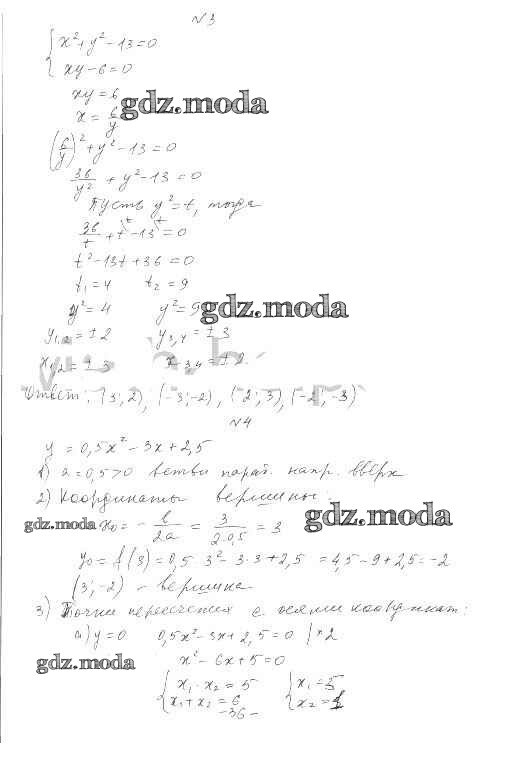 №3
{ x² + y² - 13 = 0
xy - 6 = 0
xy = 6
gdz.moda
x = 6/y
(6/y)² + y² - 13 = 0
36/y² + y² - 13 = 0
Пусть y² = t, тогда
36/t + t\t - 13\t = 0
t² - 13t + 36 = 0
t₁ = 4 t₂ = 9
y² = 4 y² = 9 gdz.moda
y₁,₂ = ±2 y₃,₄ = ±3
x₁,₂ = ±3 x₃,₄ = ±2.
Ответ: (3; 2), (-3; -2), (2; 3), (-2; -3)
№4
y = 0,5x² - 3x + 2,5
1) a = 0,5 > 0 ветви параб. напр. вверх
2) Координаты вершины:
gdz.moda x₀ = - b/2a = 3/2·0,5 = 3 gdz.moda
y₀ = f(3) = 0,5 · 3² - 3·3 + 2,5 = 4,5 - 9 + 2,5 = -2
(3; -2) - вершина
3) Точки пересечения с осями координат:
а) y = 0 0,5x² - 3x + 2,5 = 0 | *2
gdz.moda x² - 6x + 5 = 0
{ x₁ · x₂ = 5 { x₁ = 5
x₁ + x₂ = 6 x₂ = 1
-36-